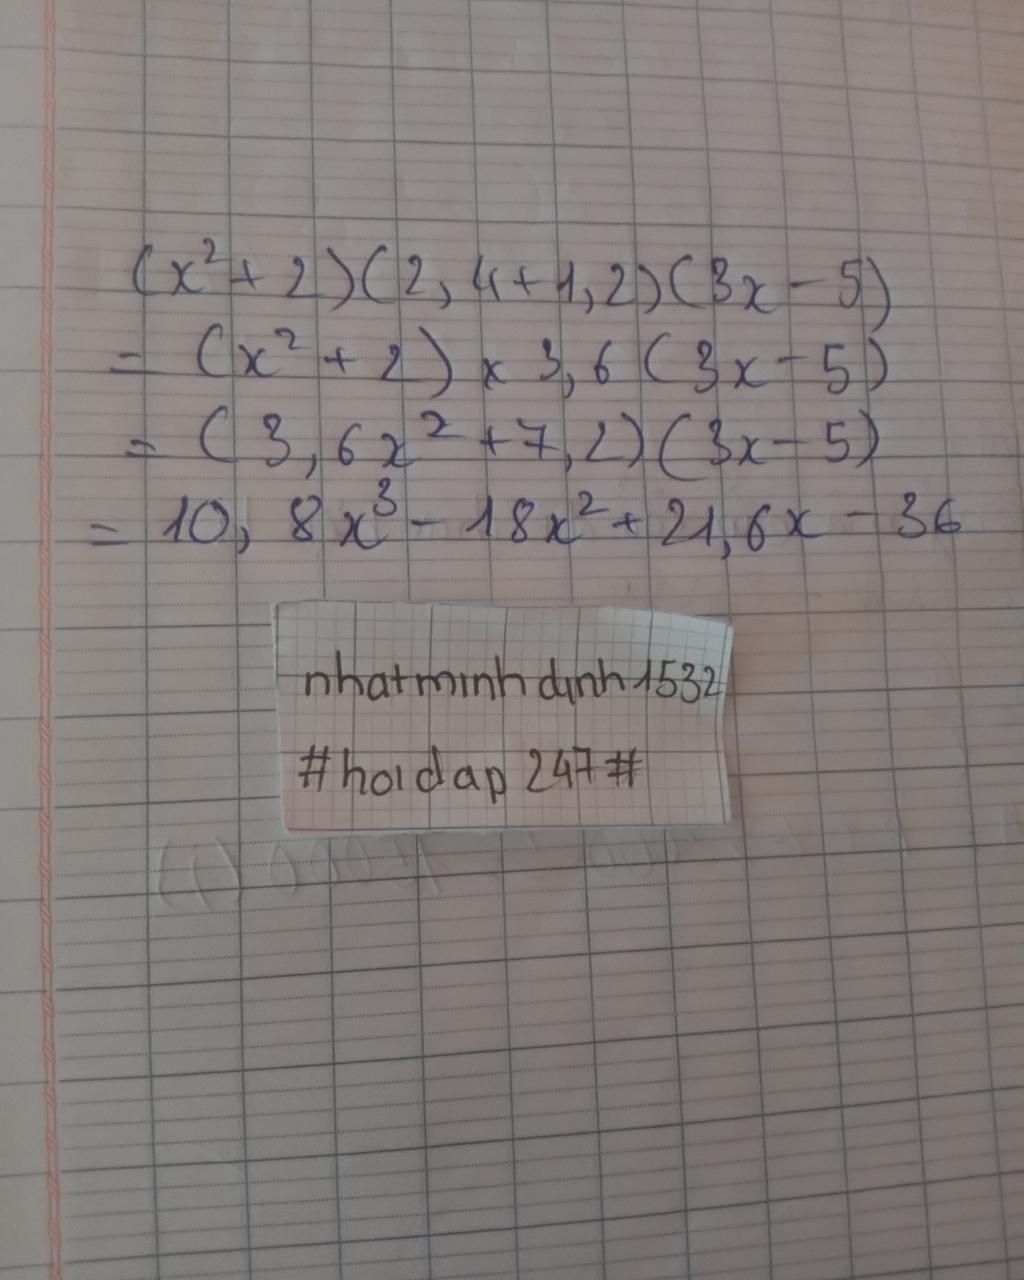 (x²+2)(2,4+1,2)(3x-5)
= (x²+2) x 3,6 (3x-5)
= (3,6x²+7,2)(3x-5)
= 10,8x³-18x²+21,6x-36
nhatminhdinh1532
#hoidap247#